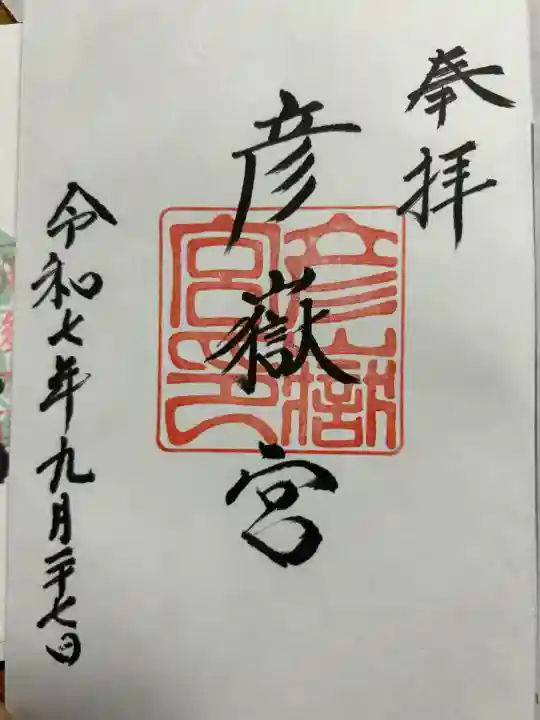 奉拝
彦嶽宮
彦嶽宮印
令和七年九月二十七日